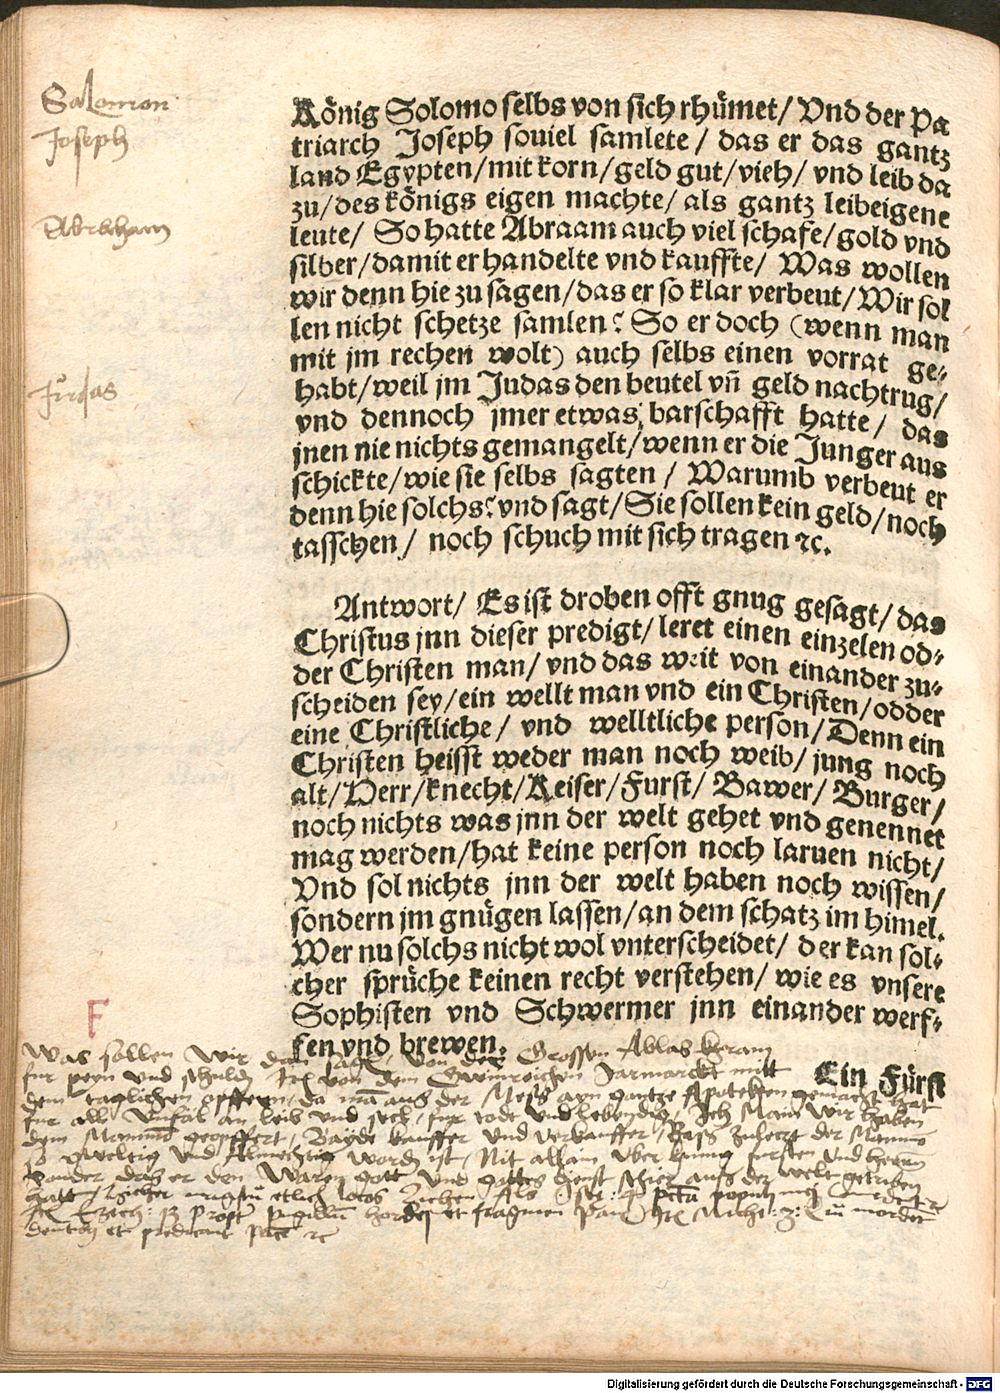 Salomon
Joseph
Abraham
Judas
König Solomo selbs von sich rhümet/ Vnd der Pa
triarch Joseph souiel samlete / das er das gantz
land Egypten/mit korn/geld gut/vieh/ vnd leib da
zu/des königs eigen machte/ als gantz leibeigene
leute/ So hatte Abraam auch viel schafe/gold vnd
silber/damit er handelte vnd kauffte/ Was wollen
wir denn hie zu sagen/das er so klar verbeut/Wir sol
len nicht schetze samlen? So er doch (wenn man
mit jm rechen wolt) auch selbs einen vorrat ge-
habt/weil jm Judas den beutel vñ geld nachtrug/
vnd dennoch jmer etwas barschafft hatte/ das
jnen nie nichts gemangelt/wenn er die Junger aus
schickte/wie sie selbs sagten / Warumb verbeut er
denn hie solchs? vnd sagt/Sie sollen kein geld/noch
tasschen/ noch schuch mit sich tragen ꝛc.
Antwort/ Es ist droben offt gnug gesagt/das
Christus jnn dieser predigt/leret einen einzelen od-
der Christen man/ vnd das weit von einander zu-
scheiden sey/ein wellt man vnd ein Christen/odder
eine Christliche/ vnd welltliche person/Denn ein
Christen heisst weder man noch weib/ jung noch
alt/Herr/knecht/Keiser/Furst/ Bawer/ Burger/
noch nichts was jnn der welt gehet vnd genennet
mag werden/hat keine person noch laruen nicht/
Vnd sol nichts jnn der welt haben noch wissen/
sondern jm gnügen lassen/an dem schatz im himel.
Wer nu solchs nicht wol vnterscheidet/ der kan sol-
cher sprüche keinen recht verstehen/ wie es vnsere
Sophisten vnd Schwermer jnn einander werf-
fen vnd brewen.
Ein Fürst
F
Was sollen wir von der Grossen Ablas
fur peyn und schuld von dem Jarmarckt mitt
dem taglichen opffern, da man aus der Mess ayn gantze Apoteken gemacht hat
fur alle Unfal an leib und seel, fur tode und lebendig, Ich Main wir haben
dem geopffert, Bayde kauffer und verkauffer, der
und Almechtig worden ist, Nit allain uber kunig fursten und herrn
das er den Waren gott und gottes dienst schier aus der welt getriben
hatt
et ꝛc
Digitalisierung gefördert durch die Deutsche Forschungsgemeinschaft - DFG